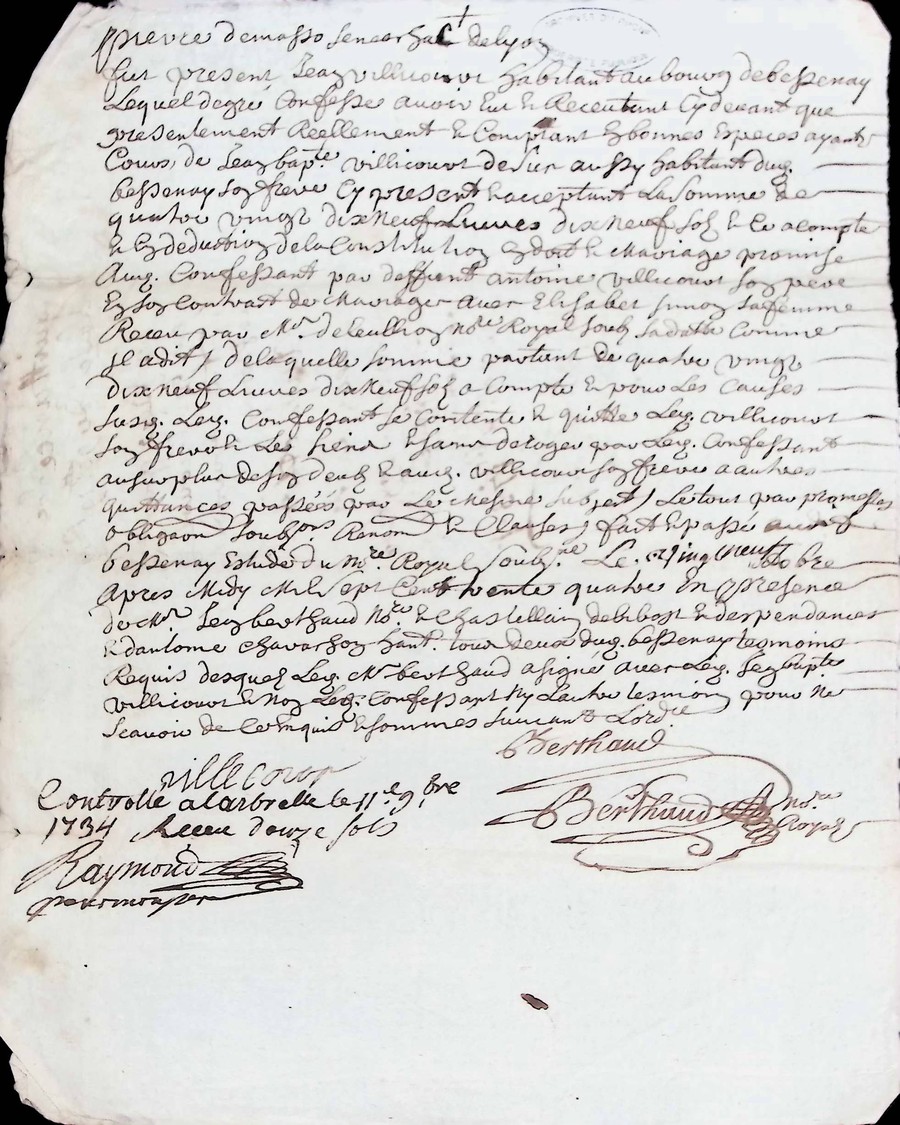 pierre demasso senechal delyon
fut present Jean villicourt habitant au bourg de bessenay
Lequel de gré Confesse avoir Eu et Receu tant Cy devant que
presentement Reellement et Comptant En bonnes Especes ayants
Cours, de Jean bapte villicourt de sur aussy habitant dud.
bessenay son frere Cy present et acceptant La somme de
quatre vingt dix neuf Livres dix neuf sols Et Ce a compte
et En deduction de la Constitution En dot et Mariage promise
Aud. Confessant par deffunt antoine villicourt son pere
En son Contract de Mariage avec Elisabet simon sa femme
Receu par Mre. de leullion nore Royal soub sa datte Comme
jl a dit, de laquelle somme partant de quatre vingt
dix neuf Livres dix Neuf sols a Compte Et pour Les Causes
susd. Led. Confessant se Contente et quitte Led. villicourt
son frere et Les siens Et sans deroger par Led. Confessant
au surplus de son deub Et aud. villicourt son frere a autres
quittances passées par Le Mesme sujet, Le tout par promesses
obligaon soubson Renonon Et Clauses, fait et passé
bessenay Estude du nore. Royal soubne. Le octobre
apres Midy Mil sept Cent trente quatre En presence
de Mre Jean berthaud Nore. et Chastellain de et despendances
et d'antoine chavachon hant. tous deux dud. bessenay tesmoins
Requis desquels Led. Mre berthaud a signé avec Led. Jean bapte
villicourt et Non Led. Confessant Ny L'autre tesmoin pour Ne
scavoir de Ce Enquis Et sommes suivant L'ordce
Berthaud
villecour
Controllé a larbrelle le 11e. 9bre
1734 Receu douze sols
Berthaud nore Royal
Raymond